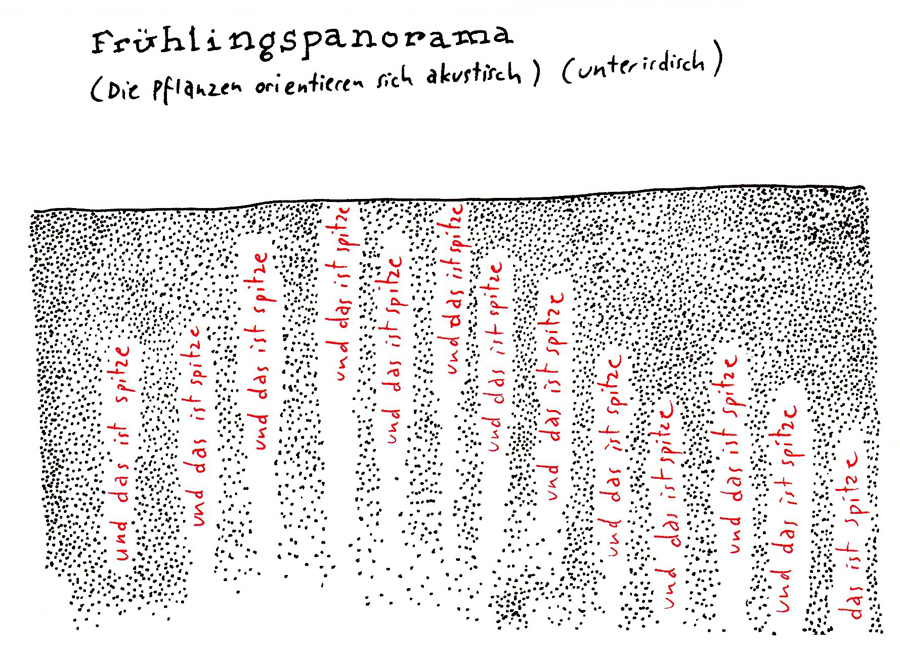 Frühlingspanorama
(Die Pflanzen orientieren sich akustisch) (unterirdisch)
und das ist spitze
und das ist spitze
und das ist spitze
und das ist spitze
und das ist spitze
und das ist spitze
und das ist spitze
und das ist spitze
und das ist spitze
und das ist spitze
und das ist spitze
und das ist spitze
das ist spitze